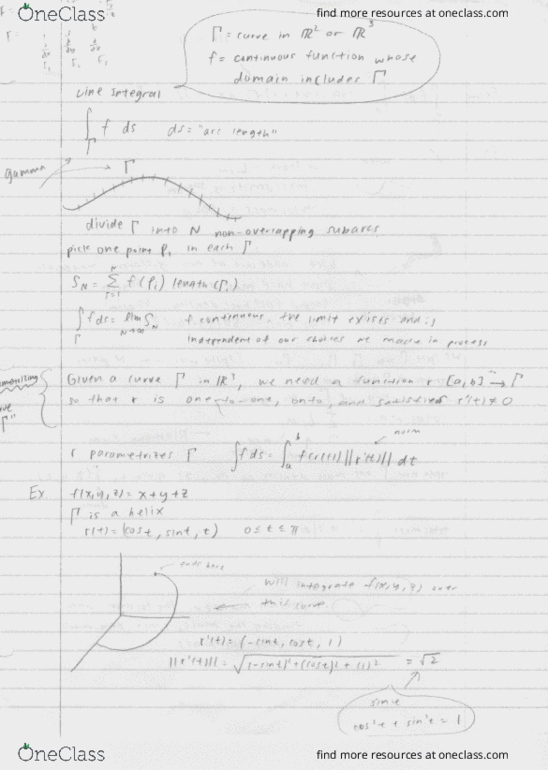 OneClass
find more resources at oneclass.com
Γ = curve in ℝ² or ℝ³
f = continuous function whose
domain includes Γ
Line Integral
∫_Γ f ds ds = "arc length"
gamma Γ
divide Γ into N non-overlapping subarcs
pick one point Pᵢ in each Γᵢ
S_N = Σ_{i=1}^{N} f(Pᵢ) length(Γᵢ)
∫_Γ f ds = lim_{N→∞} S_N f continuous, the limit exists and is
independent of our choices we made in process
Given a curve Γ in ℝ³, we need a function r [a,b] → Γ
so that r is one-to-one, onto, and satisfies r'(t) ≠ 0
norm
r parametrizes Γ ∫ f ds = ∫_a^b f(r(t)) ||r'(t)|| dt
Ex f(x,y,z) = x+y+z
Γ is a helix
r(t) = (cos t, sin t, t) 0 ≤ t ≤ π
ends here
will integrate f(x,y,z) over
this curve
r'(t) = (-sin t, cos t, 1)
||r'(t)|| = √((-sin t)² + (cos t)² + (1)²) = √2
since
cos²t + sin²t = 1
OneClass
find more resources at oneclass.com